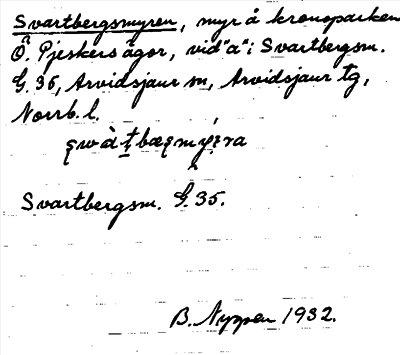 Svartbergsmyren, myr å kronoparken
Ö. Pjeskers ägor, vid "a" i Svartbergsm.
G. 35, Arvidsjaur sn, Arvidsjaur tg,
Norrb. l.
Svartbergsm. G. 35.
B. Nyppen 1932.